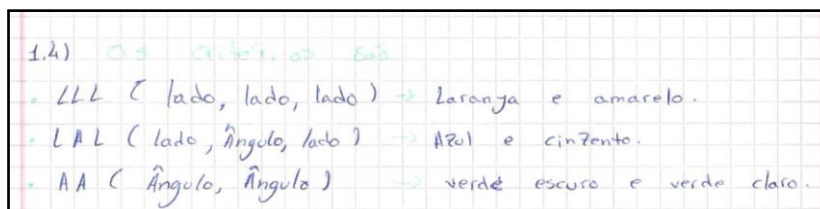 1.4) Os critérios são
• LLL ( lado, lado, lado ) → Laranja e amarelo.
• LAL ( lado, Ângulo, lado ) → Azul e cinzento.
• AA ( Ângulo, Ângulo ) → verde escuro e verde claro.